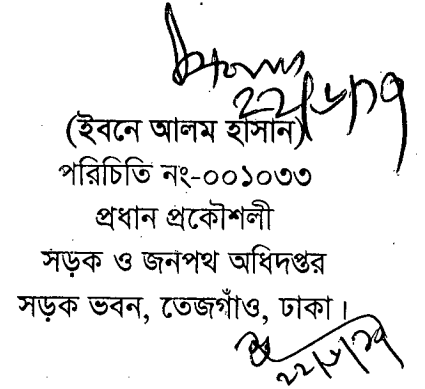 ২২/৬/১৭
(ইবনে আলম হাসান)
পরিচিতি নং-০০১০৩৩
প্রধান প্রকৌশলী
সড়ক ও জনপথ অধিদপ্তর
সড়ক ভবন, তেজগাঁও, ঢাকা।
২২/৬/১৭